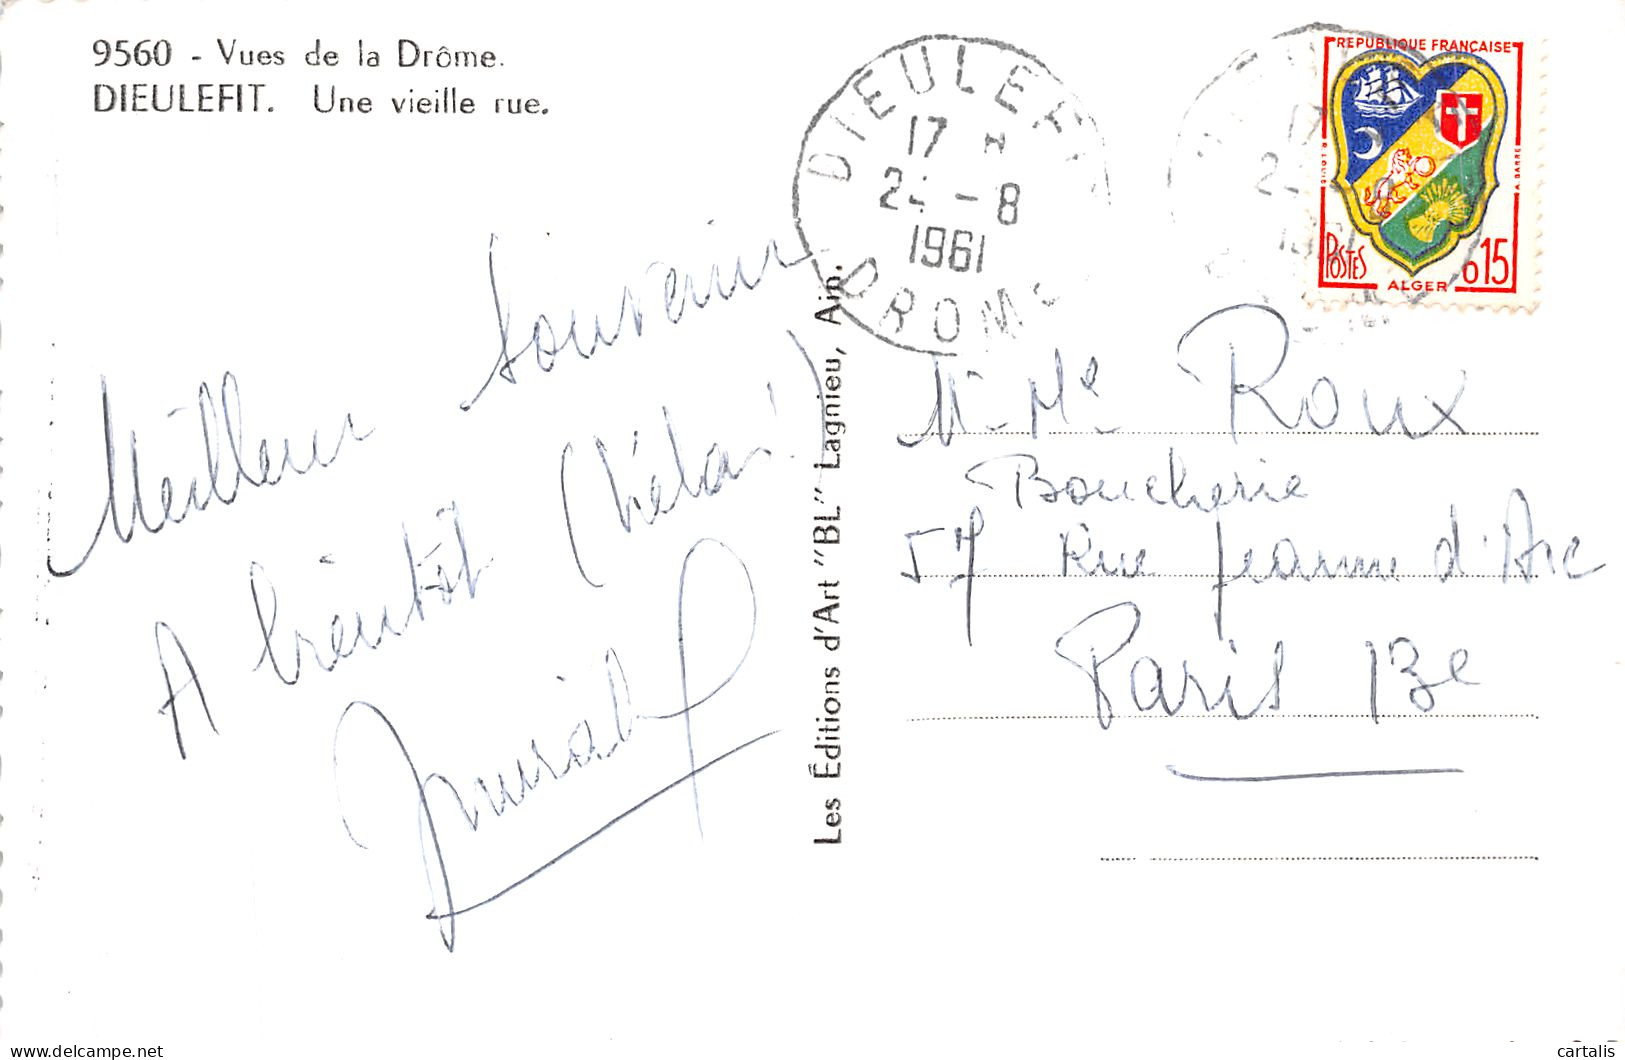 9560 - Vues de la Drôme.
DIEULEFIT. Une vieille rue.
Meilleur souvenir
A bientôt (hélas!)
Les Éditions d'Art "BL" Lagnieu, Ain.
DIEULEFIT
17 H
24 - 8
1961
DROME
RÉPUBLIQUE FRANÇAISE
POSTES
0,15
ALGER
M. Me Roux
Boucherie
57 Rue Jeanne d'Arc
Paris 13e
delcampe.net
cartalis